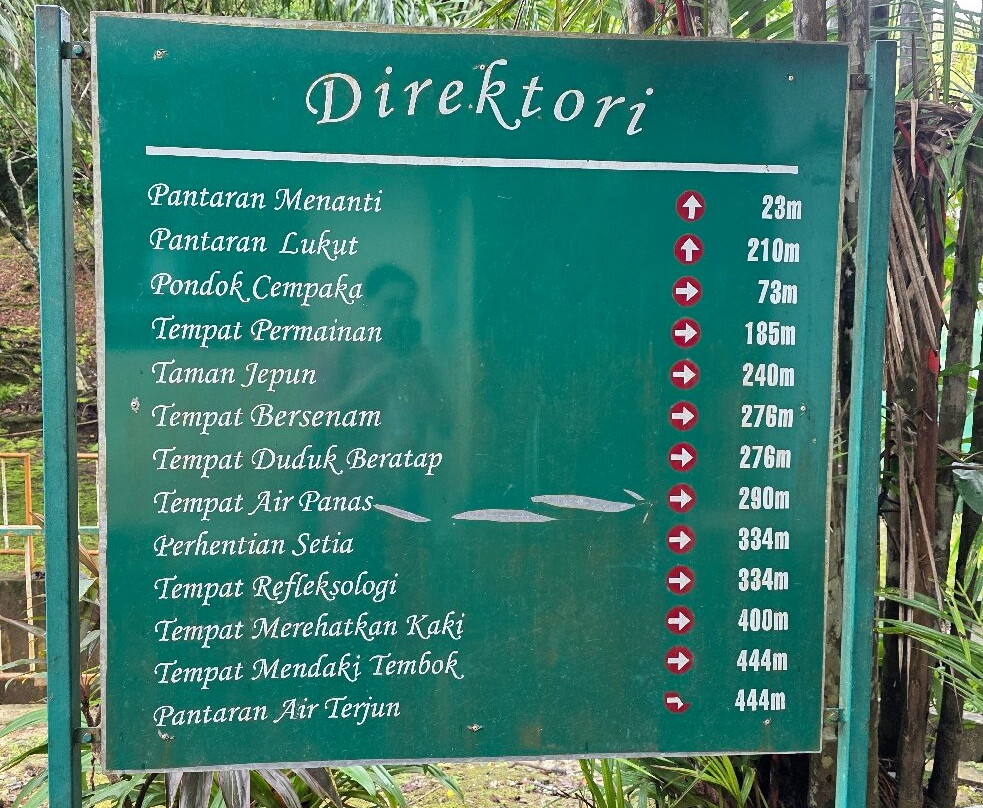 Direktori
Pantaran Menanti 23m
Pantaran Lukut 210m
Pondok Cempaka 73m
Tempat Permainan 185m
Taman Jepun 240m
Tempat Bersenam 276m
Tempat Duduk Beratap 276m
Tempat Air Panas 290m
Perhentian Setia 334m
Tempat Refleksologi 334m
Tempat Merehatkan Kaki 400m
Tempat Mendaki Tembok 444m
Pantaran Air Terjun 444m